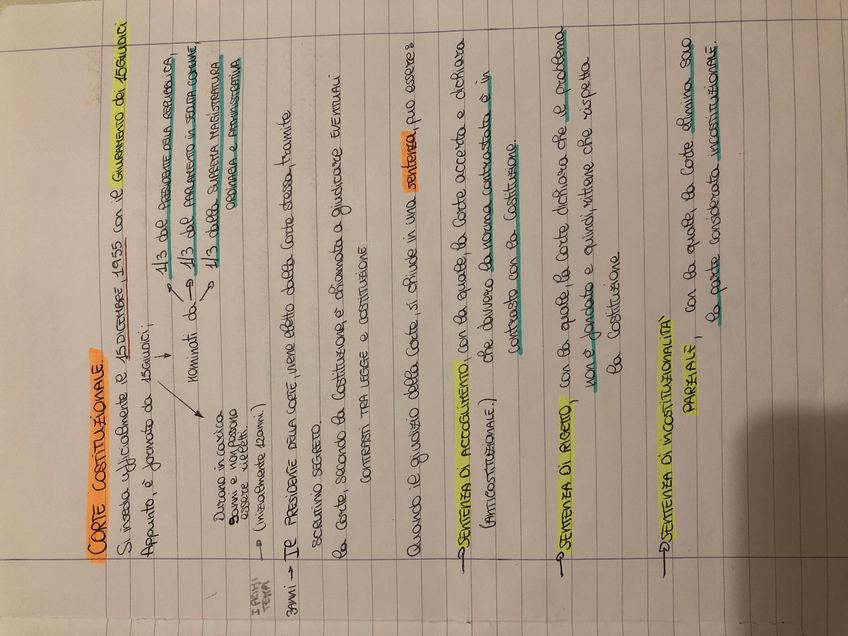 CORTE COSTITUZIONALE
Si insedia ufficialmente il 15 DICEMBRE, 1955 con il GIURAMENTO dei 15 GIUDICI
Appunto, è formato da 15 GIUDICI,
nominati da
1/3 dal PRESIDENTE DELLA REPUBBLICA,
1/3 dal PARLAMENTO IN SEDUTA COMUNE,
1/3 dalla SUPREMA MAGISTRATURA
ORDINARIA E AMMINISTRATIVA
Durano in carica
9 anni e non possono
essere rieletti.
I PRIMI
TEMPI
(inizialmente 12 anni)
3 anni → Il PRESIDENTE DELLA CORTE, viene eletto dalla Corte stessa, tramite
SCRUTINIO SEGRETO.
La Corte, secondo la Costituzione, è chiamata a giudicare EVENTUALI
CONTRASTI TRA LEGGE E COSTITUZIONE
Quando il giudizio della Corte, si chiude in una sentenza, può essere:
→ SENTENZA DI ACCOGLIMENTO, con la quale, la Corte accerta e dichiara
(ANTICOSTITUZIONALE.) che davvero la norma contrastata è in
contrasto con la Costituzione.
→ SENTENZA DI RIGETTO, con la quale, la Corte dichiara che il problema
non è fondato e quindi, ritiene che rispetta
la Costituzione
→ SENTENZA DI INCOSTITUZIONALITÀ
PARZIALE, con la quale, la Corte elimina solo
la parte considerata incostituzionale.